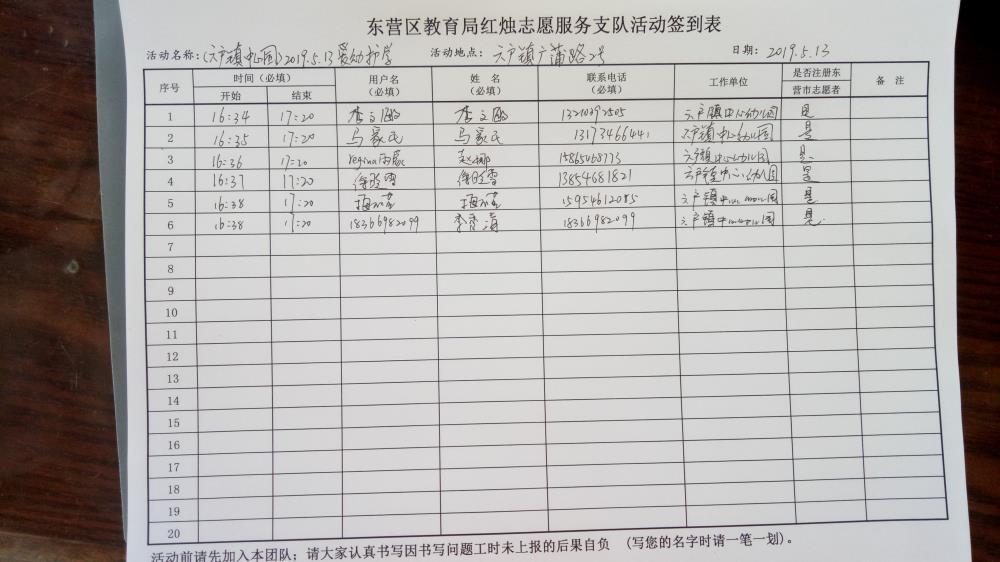 东营区教育局红烛志愿服务支队活动签到表
活动名称:(六户镇中心园)2019.5.13爱幼护学 活动地点: 六户镇广蒲路2号 日期: 2019.5.13
序号 时间(必填) 用户名(必填) 姓名(必填) 联系电话(必填) 工作单位 是否注册东营市志愿者 备注
开始 结束
1 16:34 17:20 李文 李文 13210392505 六户镇中心幼儿园 是
2 16:35 17:20 马家民 马家民 1317346644 六户镇中心幼儿园 是
3 16:36 17:20 regina 赵娜 15865468773 六户镇中心幼儿园 是
4 16:37 17:20 徐 雪 徐 雪 13854681821 六户镇中心幼儿园 是
5 16:38 17:20 15954612085 六户镇中心幼儿园 是
6 16:38 17:20 18366982099 李香 18366982099 六户镇中心幼儿园 是
7
8
9
10
11
12
13
14
15
16
17
18
19
20
活动前请先加入本团队;请大家认真书写因书写问题工时未上报的后果自负 (写您的名字时请一笔一划)。